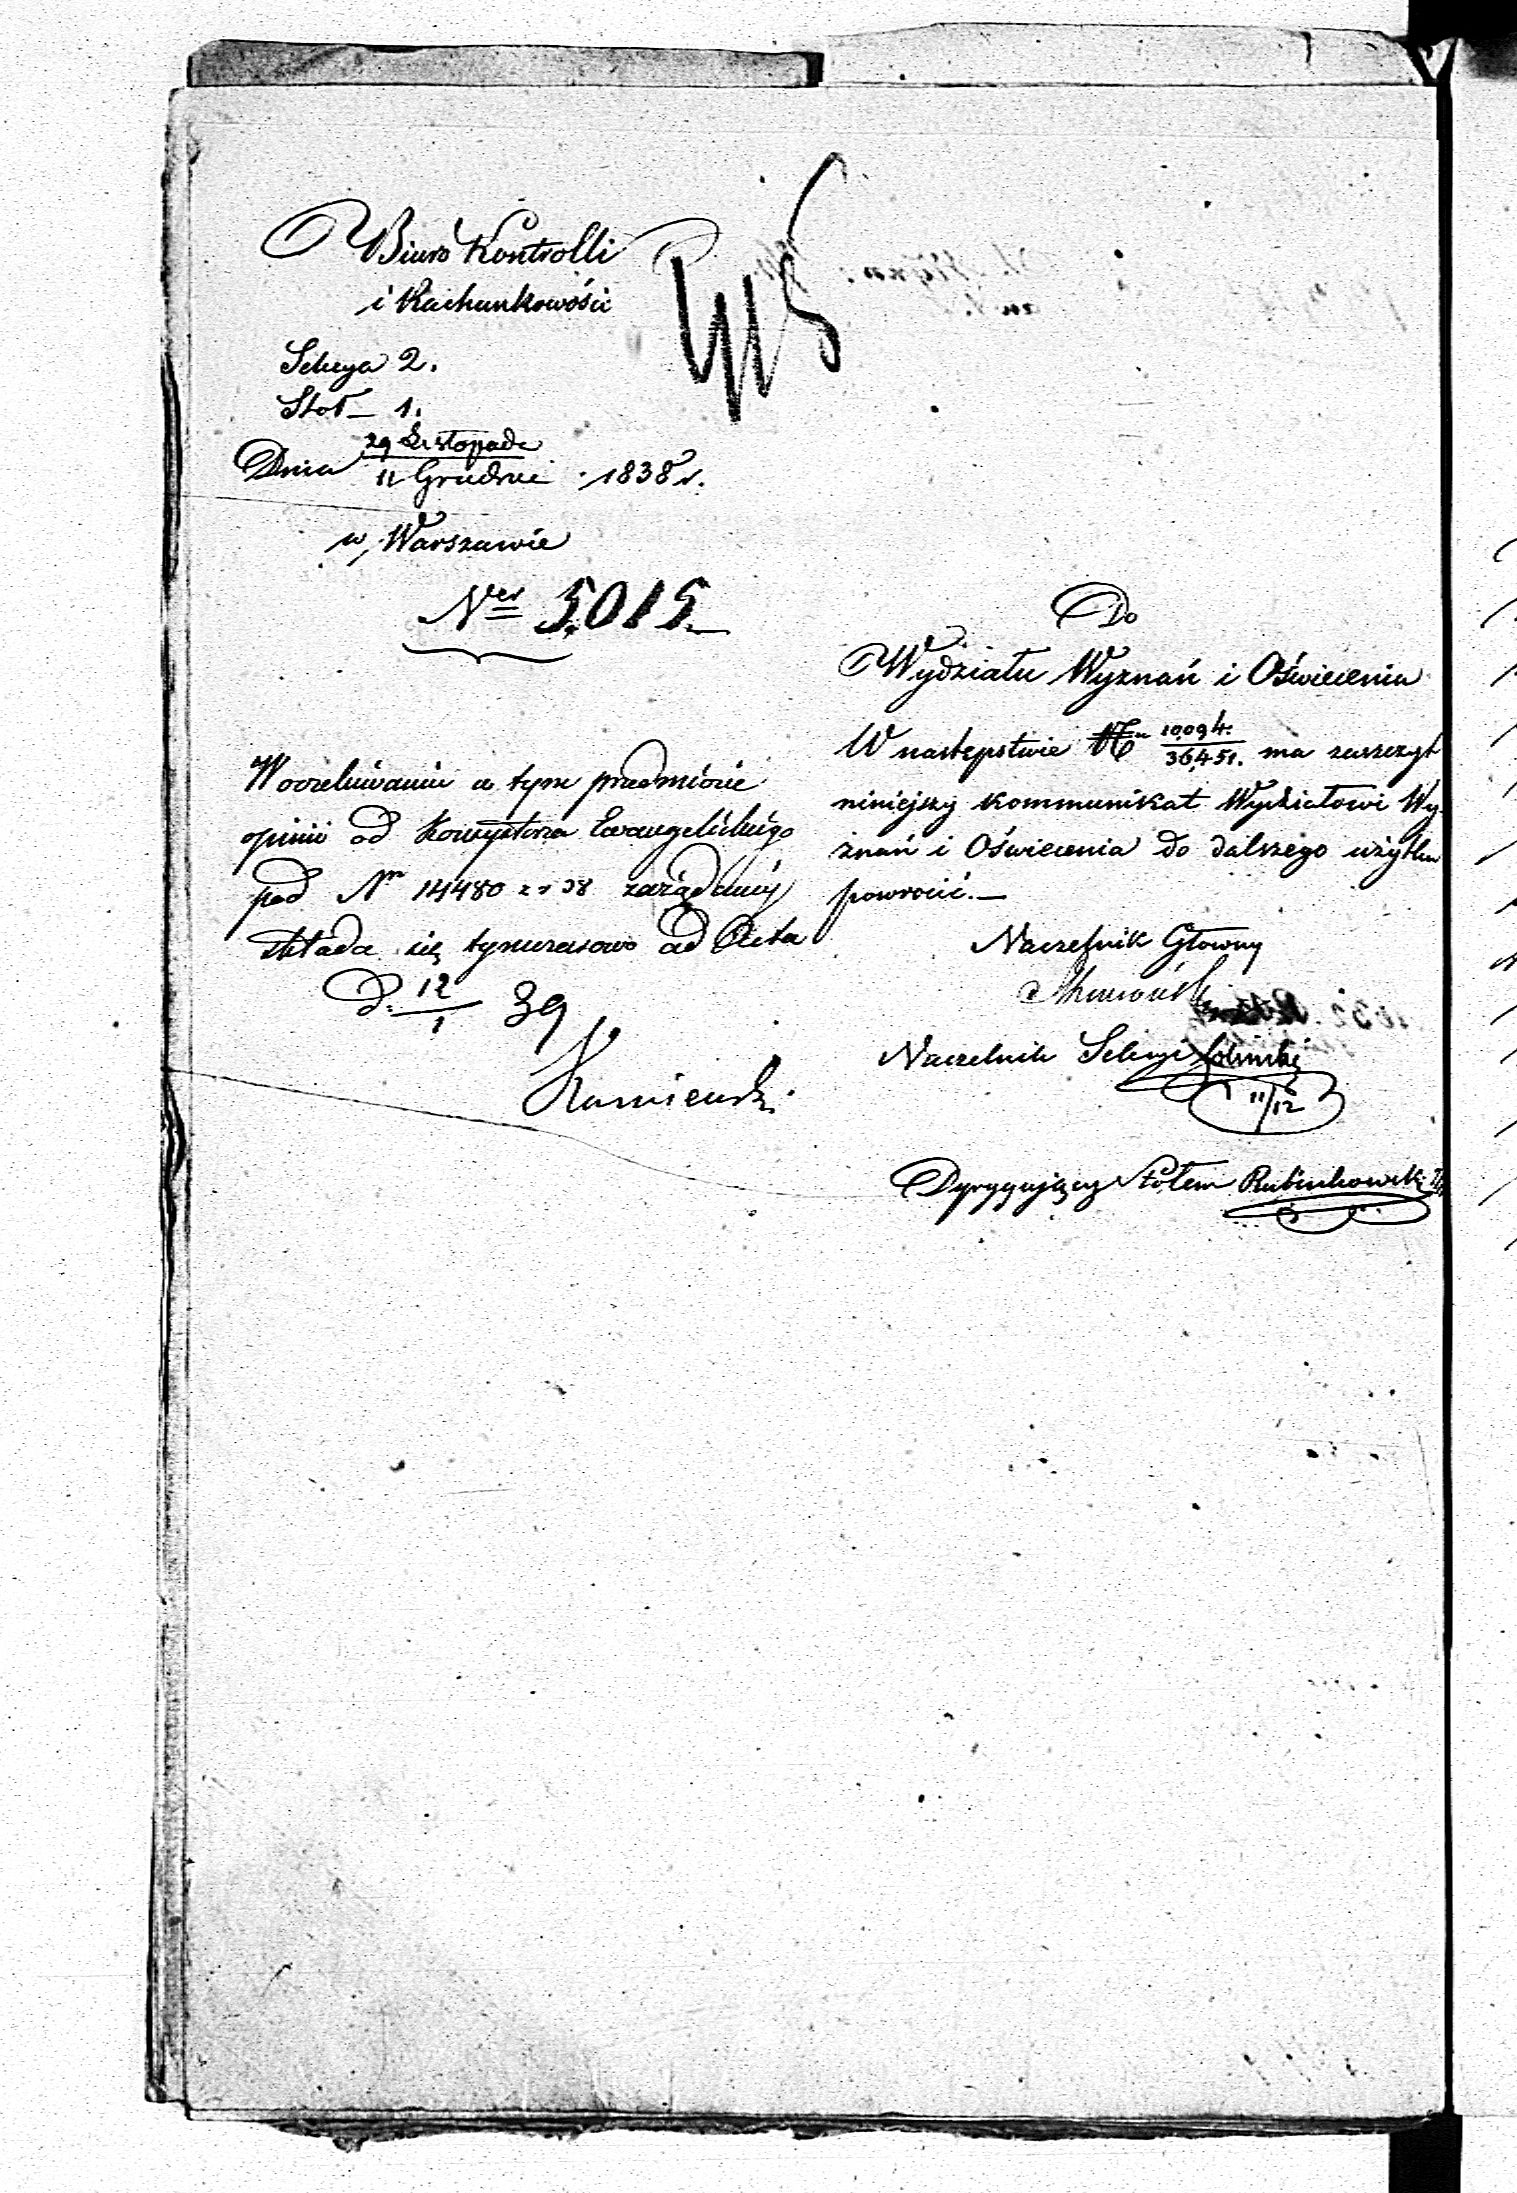 Biuro Kontrolli
i Rachunkowości
Sekcya 2.
Stół 1.
29 Listopada
Dnia 11 Grudnia 1838 r.
w Warszawie
Ner 5,015.
Do
Wydziału Wyznań i Oświecenia
W następstwie Nr 10,094. / 36,451. ma zaszczyt
niniejszy kommunikat Wydziałowi Wy-
znań i Oświecenia do dalszego użytku
powrócić.—
Naczelnik Głowny
Naczelnik Sekcyi
11/12
Dyrygujący Stołem Rubinkowski
W oczekiwaniu w tym przedmiocie
opinii od Konsystorza Ewangelickiego
pod Nr 14480 z r 38 zażądanéj
składa się tymczasowo ad Acta
D. 12/1 39
Kamieński